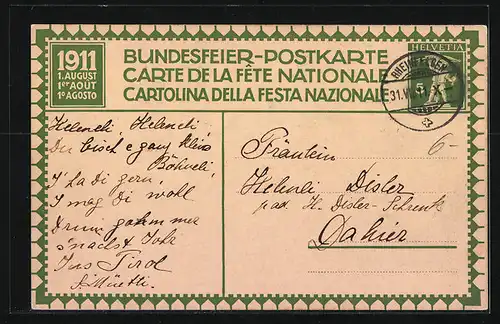 1911
1. AUGUST
1er AOÛT
1º AGOSTO
BUNDESFEIER-POSTKARTE
CARTE DE LA FÊTE NATIONALE
CARTOLINA DELLA FESTA NAZIONALE
HELVETIA
31.V
X
Heleneli, Heleneli,
Du bisch e ganz kleis
Böhneli,
I ha di gern,
I mag di wohl
Drum gahm mer
s'nächst Johr
Ins Tirol
6-
Fräulein
Heleneli Disler
pad. H. Disler-Schrenk